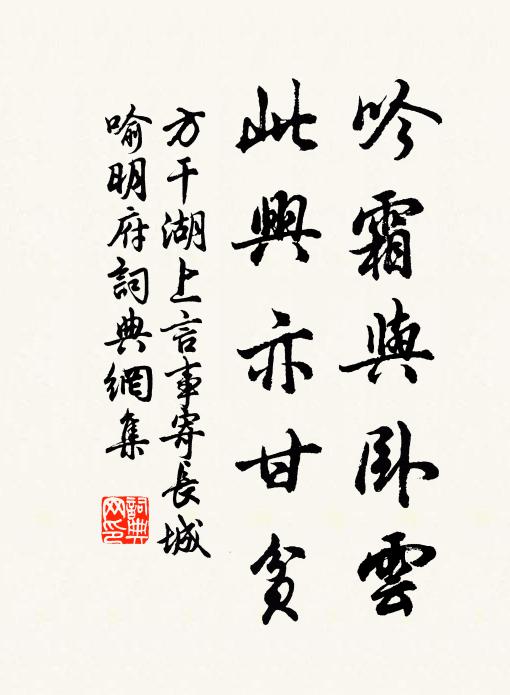 吟霜與卧雲
此興亦甘貧
方干湖上言事寄長城
喻明府詞典網集
詞典
网印